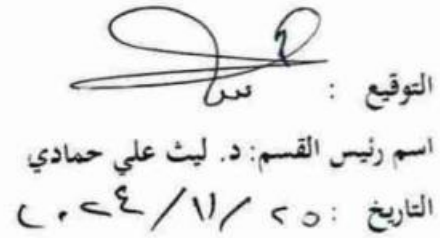 التوقيع :
اسم رئيس القسم: د. ليث علي حمادي
التاريخ : ٢٥ / ١١ / ٢٠٢٤